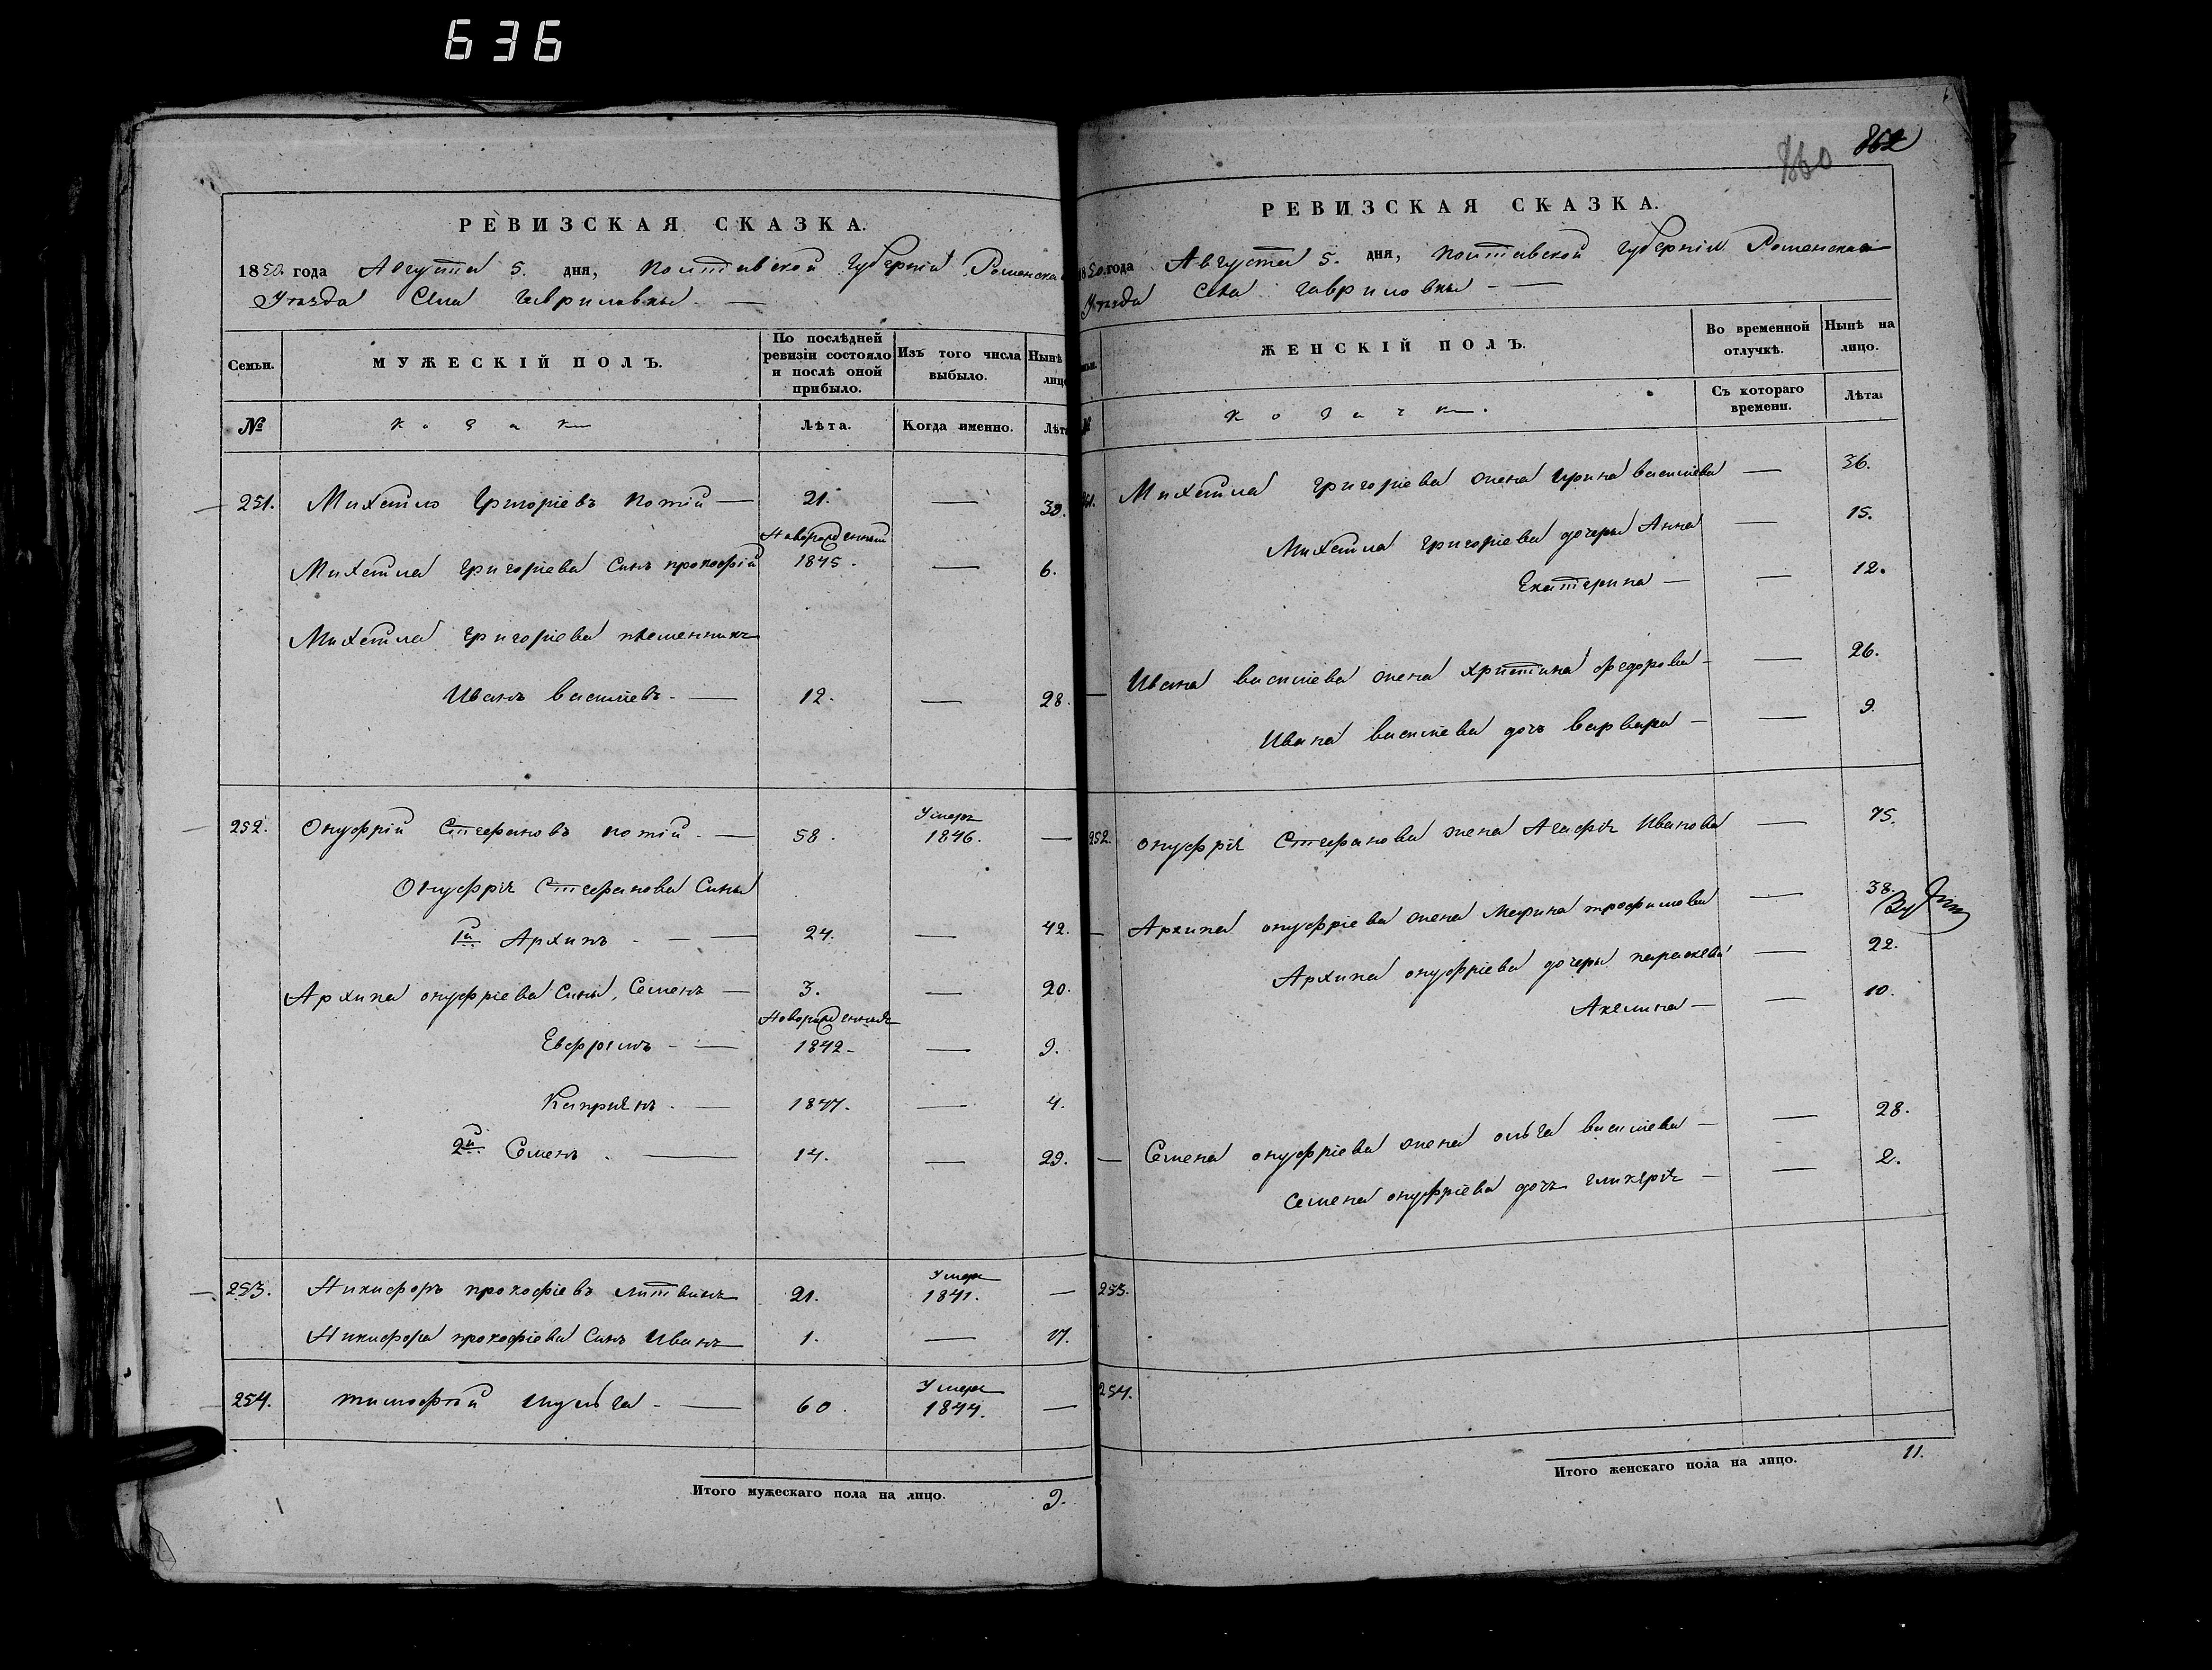 636
РЕВИЗСКАЯ СКАЗКА.
1850 года Августа 5. дня, Полтавской Губерніи Роменска
Уѣзда Села Гавриловки. —
Семьи. МУЖЕСКІЙ ПОЛЪ. По послѣдней ревизіи состояло и послѣ оной прибыло. Изъ того числа выбыло. Нынѣ лицо
№ Козаки Лѣта. Когда именно. Лѣта
251. Михайло Григоріевъ Потій — 21. — 39.
Новорожденный
Михайла Григоріева Сынъ Прокофій 1845. — 6.
Михайла Григоріева племенникъ
Иванъ Василіевъ. — 12. — 28.
252. Онуфрій Стефановъ Потій. — 58. Умеръ 1846. —
Онуфрія Стефанова Сыны
1й Архипъ. — 24. — 42.
Архипа Онуфріева Сыны, Семенъ — 3. — 20.
Новорожденные
Евфримъ — 1842. — 9.
Киприянъ. — 1847. — 4.
2й Семенъ. — 14. — 29.
253. Никифоръ Прокофіевъ Литвинъ 21. Умеръ 1841. —
Никифора Прокофіева Сынъ Иванъ 1. — 17.
254. Тимофѣй Шульга. — 60. Умеръ 1844. —
Итого мужескаго пола на лицо. 9.
862
860
РЕВИЗСКАЯ СКАЗКА.
1850 года Августа 5. дня, Полтавской Губерніи Роменскаго
Уѣзда Села Гавриловки —
ЖЕНСКІЙ ПОЛЪ. Во временной отлучкѣ. Нынѣ на лицо.
№ Козачки. Съ котораго времени. Лѣта.
251. Михайла Григоріева жена Ирина Василіева — 36.
Михайла Григоріева дочеры Анна — 15.
Екатерина — — 12.
Ивана Василіева жена Христина Федорова — — 26.
Ивана Василіева дочь Варвара — — 9.
252. Онуфрія Стефанова жена Агафія Иванова — 75.
Архипа Онуфріева жена Марина Трофимова — 38.
Архипа Онуфріева дочеры Параскева — 22.
Акелина — — 10.
Семена Онуфріева жена Ольга Василіева — — 28.
Семена Онуфріева дочь Гликерія — — 2.
253.
254.
Итого женскаго пола на лицо. 11.